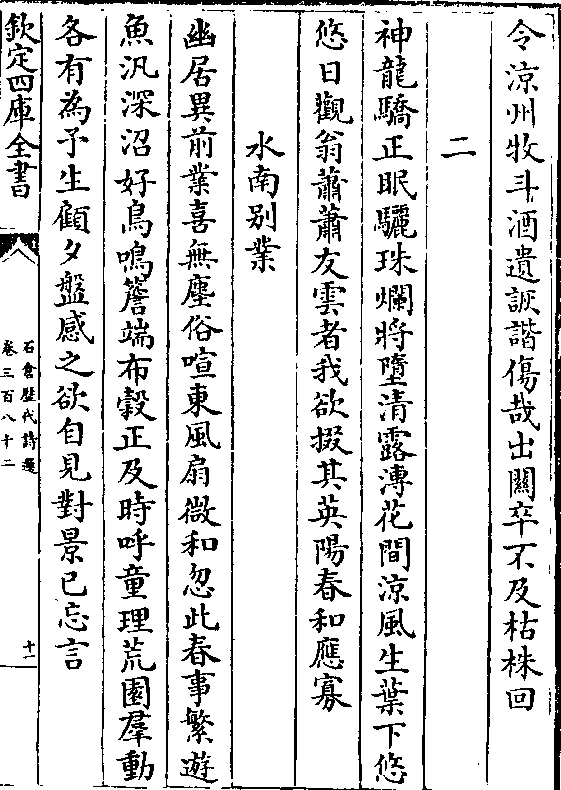 令涼州牧斗酒遺詼諧傷哉出關卒不及枯株回
二
神龍驕正眠驪珠爛將墮清露漙花間涼風生葉下悠
悠日觀翁蕭蕭友雲者我欲掇其英陽春和應寡
水南别業
幽居異前業喜無塵俗喧東風扇微和忽此春事繁遊
魚汎深沼好鳥鳴簷端布穀正及時呼童理荒園羣動
各有為予生顧夕盤感之欲自見對景已忘言
欽定四庫全書
石倉歴代詩選
卷三百八十二
十一